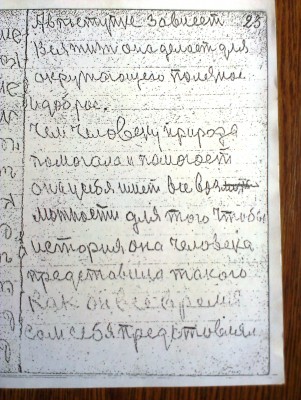 Авпостутке Зависеет 23
Вся жизнь она делает для
окружающего полезное
и доброе.
Чем человеку природа
помогала и помогает
она у себя ищет все воз
можности для того чтобы
история она человека
представица такого
как он все время
сам себя представлял.